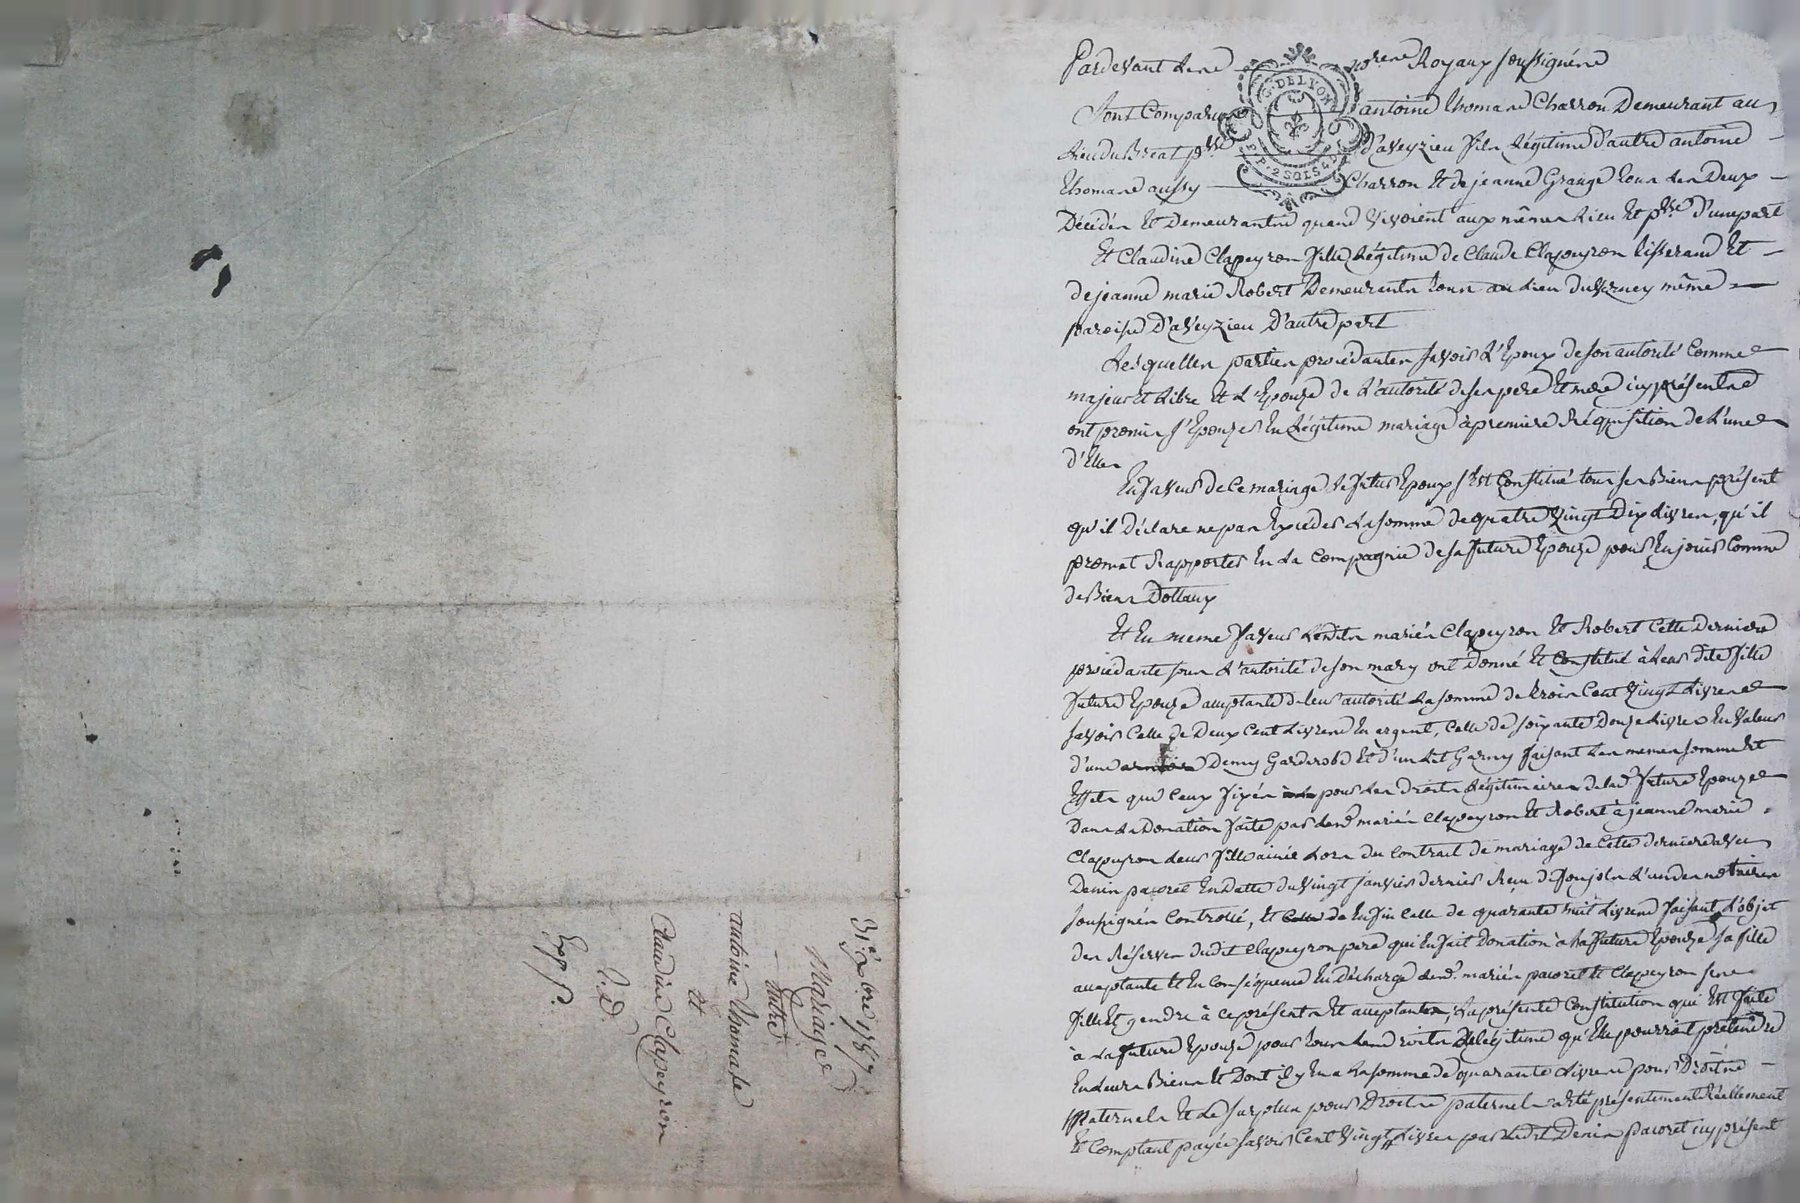 31e xbre 1787
Mariage
Entre
antoine thomas
et
Claudine Clapeyron
Exp. p.
Pardevant les nores Royaux soussignés
G. DE LYON
2 SOLS
Sont Comparus antoine thomas Charron Demeurant au
lieu du Breat psse d'aveyzieu fils légitime d'autre antoine
thomas aussy Charron Et de jeanne Grange tous les Deux
Décédés Et Demeurants quand vivoient aux mêmes lieu Et psse d'une part
Et Claudine Clapeyron fille légitime de Claude Clapeyron tisserand Et
de jeanne marie Robert Demeurants tous au lieu du verney même
paroisse D'aveyzieu D'autre part
Lesquelles parties procédantes savoir L'Epoux de son autorité Comme
majeur Et Libre Et L'Epouze de L'autorité de ses pere Et mere icy présents
ont promis s'Epouzer En légitime mariage à premiere Réquisition de L'une
d'Elles
En faveur de Ce mariage le futur Epoux s'Est Constitué tous ses Biens présent
qu'il Déclare ne pas Exceder La somme de quatre vingt Dix livres, qu'il
promet Rapporter En La Compagnie de sa future Epouze pour En jouir Comme
de Biens Dottaux
Et En meme faveur lesdits mariés Clapeyron Et Robert Cette Derniere
procédante sous L'autorité de son mary ont Donné Et Constitué à leur dite fille
future Epouze acceptante de leur autorité La somme de trois Cent vingt livres
savoir Celle de Deux Cent livres En argent, Celle de soixante Douze livres En valeur
d'une Demy Garderobe Et d'un Lit Garny faisant Les memes somme Et
Effets que Ceux fixés pour Les droits légitimaires de lad. future Epouze
Dans La Donation faite par lesd. mariés Clapeyron Et Robert à jeanne marie
Clapeyron leur fille ainée Lors du Contrat de mariage de Cette derniere avec
Denis pacoret En Datte du vingt janvier dernier Reçu de L'un des notaires
soussignés Controllé, Et de Enfin Celle de quarante huit livres faisant L'objet
des Réserves dudit Clapeyron pere qui En fait Donation à La future Epouze sa fille
acceptante Et En Conséquence En décharge lesd. mariés pacoret Et Clapeyron ses
fille Et gendre à Ce présents Et acceptants, La présente Constitution qui Est faite
à La future Epouze pour tous les droits De légitime qu'Elle pourroit prétendre
En leurs Biens Et Dont il y En a La somme de quarante livres pour Droits
Maternels Et Le surplus pour Droits paternels a été présentement Réellement
Et Comptant payée savoir Cent vingt livres par ledit Denis pacoret icy présent